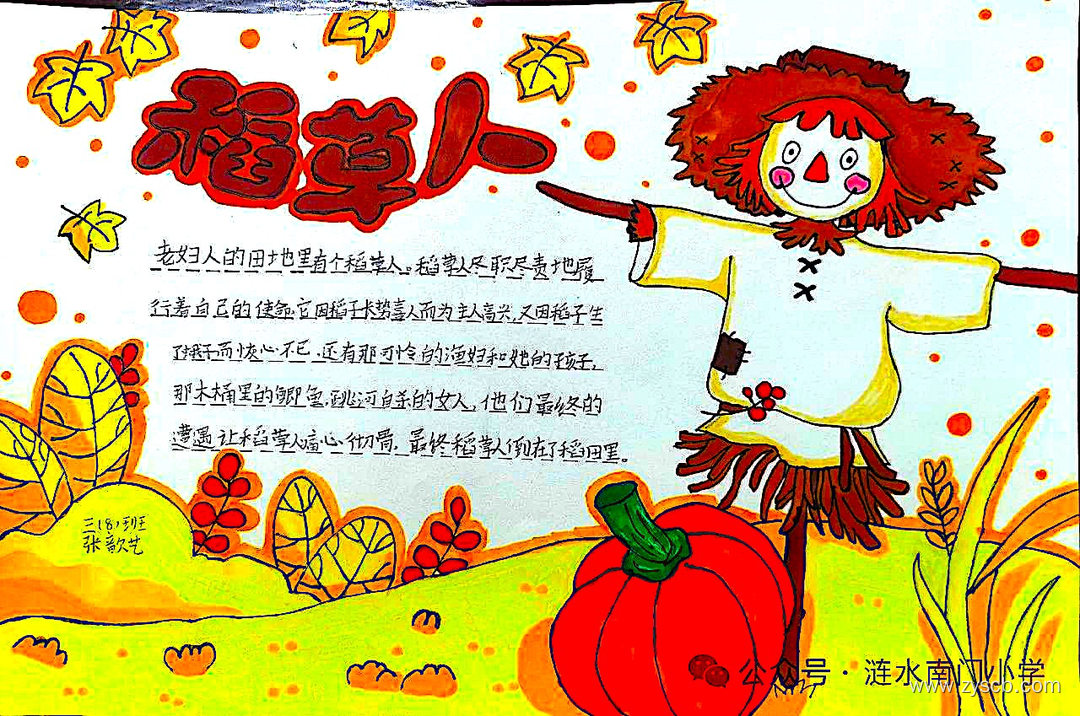 稻草人
老妇人的田地里有个稻草人。稻草人尽职尽责地履
行着自己的使命,它因稻子长势喜人而为主人高兴,又因稻子生
了蛾子而忧心不已,还有那可怜的渔妇和她的孩子,
那木桶里的鲫鱼,跳河自杀的女人,他们最终的
遭遇让稻草人痛心彻骨,最终稻草人倒在了稻田里。
三(8)班
张歆艺
公众号·涟水南门小学
www.zyscb.com